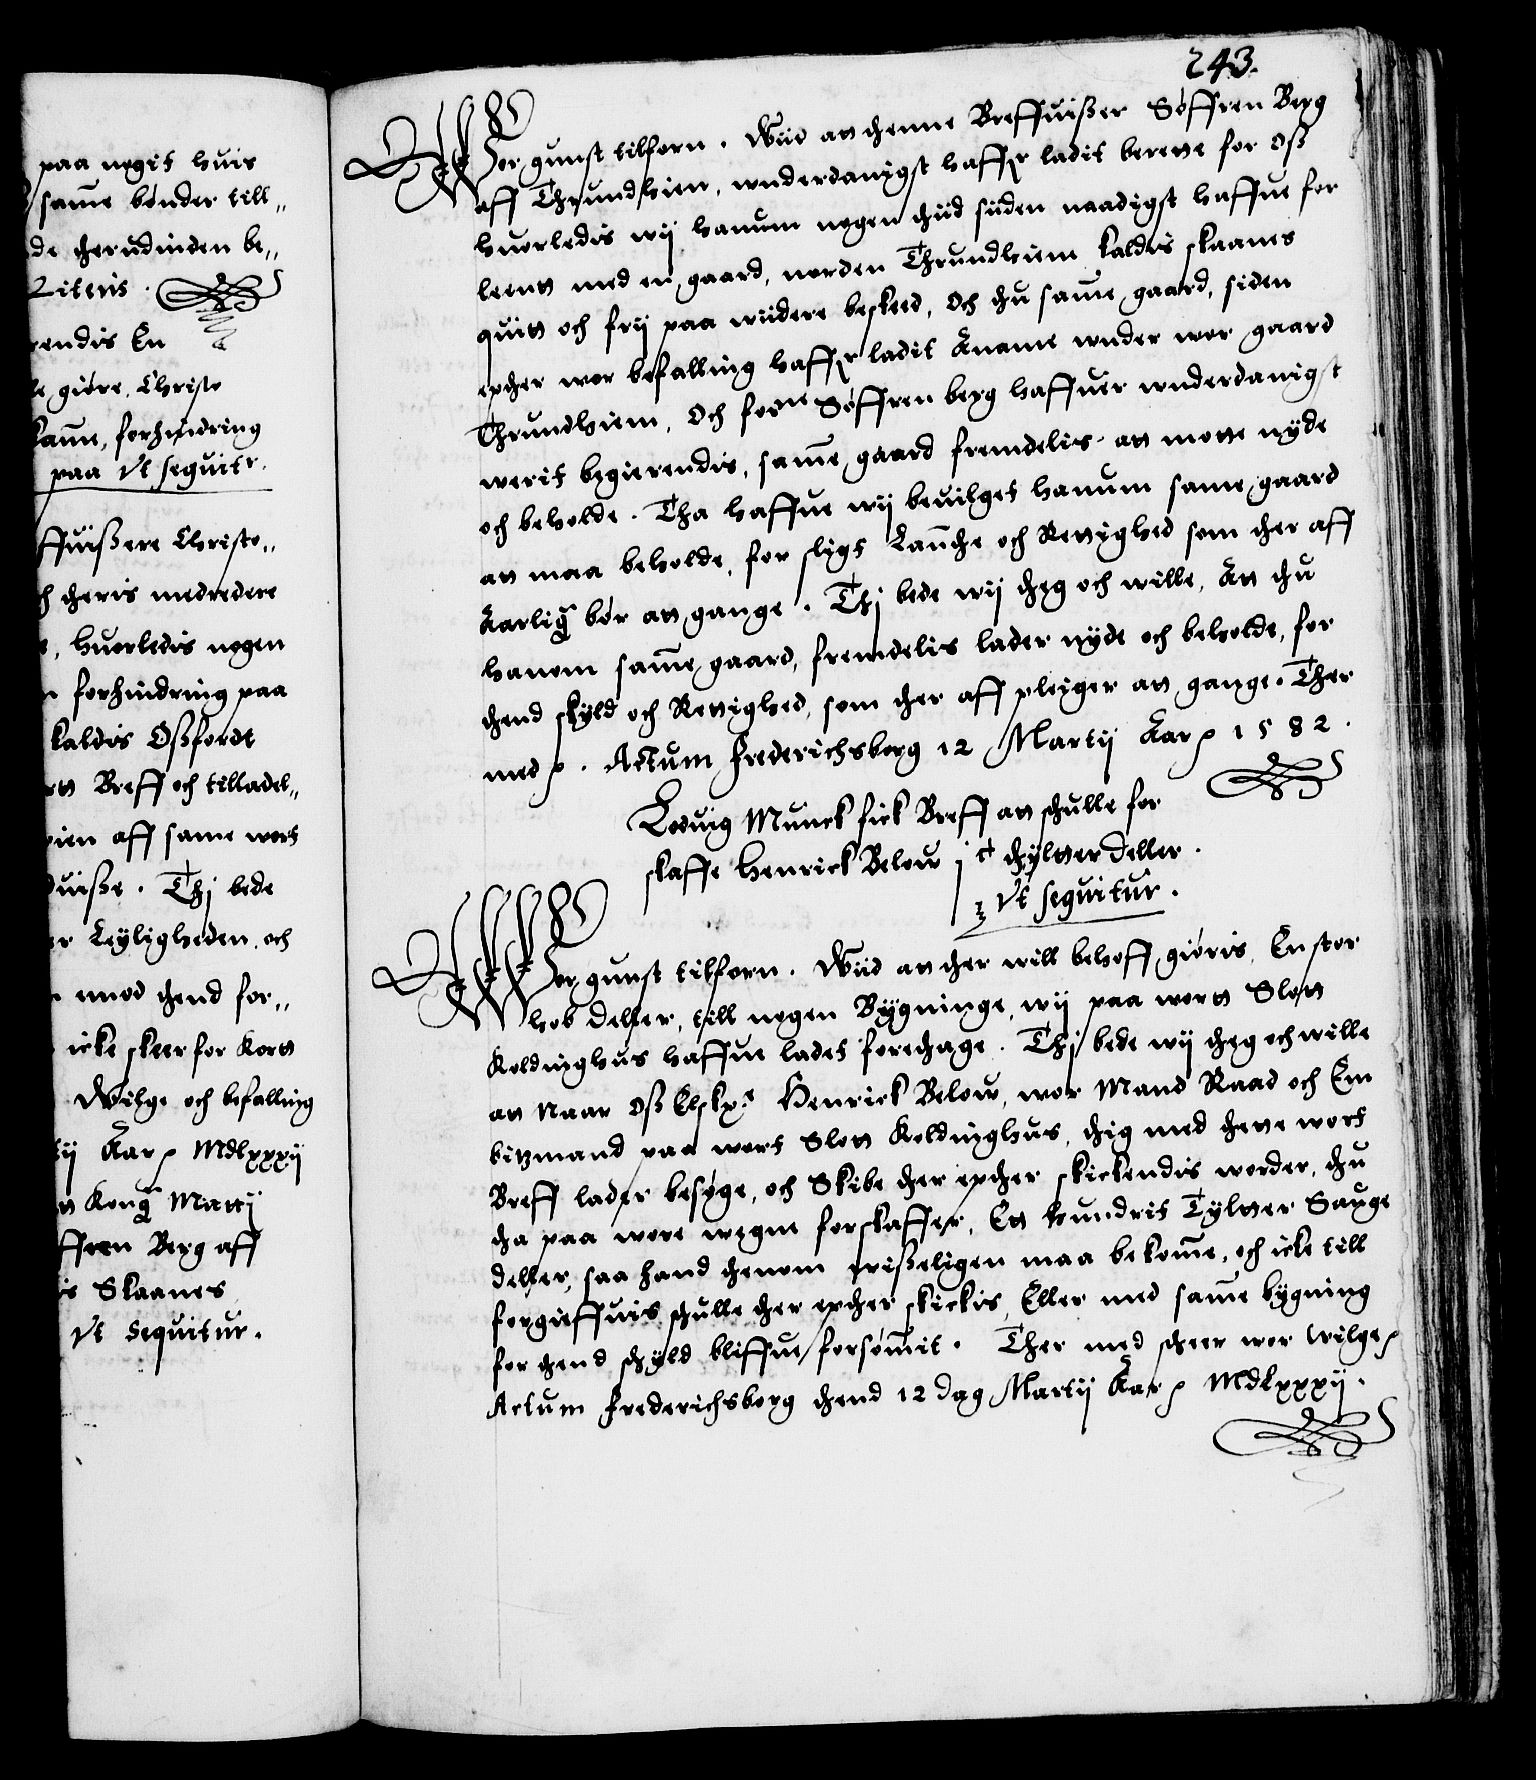 paa nogit huis
same bønder till„
de therudinden be„
Literis.
rendis En
le giøre. Christo
kaune, forhindring
paa Vt seguitr.
ffuißere Christo„
h theris medredere
e, huorledis nogen
n forhindring paa
kaldis Oßfordt
rtt Breff och tilladel„
ien aff same wort
duiße. Thj bede
er Leyligheden, och
n imod thend for„
icke skeer for Kortt
Wilge och befalling
tij Aar ꝛ MDLxxxij
n Kong Matt:
ffren Berg aff
is Skaanes
Vt Sequitur.
243.
Wor gunst tilforn. Wiid att thenne Breffuißer Søffren Berg
aff Thrundhiem, wnderdanigst haffr ladit berette for Oß
huorledis wij hanum nogen thiid siiden naadigst haffue for
leentt med en gaard, norden Thrundhiem kaldis skaanes
quitt och frij paa wiidere beskeed, Och thu same gaard, siden
epther wor befalling haffr ladit Aname wnder wor gaard
Thrundhiem, Och forne Søffren berg haffuer wnderdanigst
werit begierendis, same gaard fremdelis att motte nyde
och beholde. Tha haffue wij beuilget hanum same gaard
att maa beholde, for sligt Laudhe och Rettighed som ther aff
Aarlig bør att gange. Thj bede wij theg och wille, At thu
hanom same gaard, fremdelis lader nyde och beholde, for
thend skyld och Rettighed, som ther aff pleiger att gange. Ther
med ꝛ. Actum Frederichsborg 12 Martij Aar ꝛ 1582.
Loduig Munck fick Breff att schulle for
skaffe Henrick Below jc thylter deller.
Vt seguitur.
Wor gunst tilforn. Wiid att ther will behoff giøris, En stor
hob deller, till nogen Bygninge, wij paa wortt Slott
Koldinghus haffue ladet foretage. Thj bede wij theg och wille
att Naar Oß Elskr: Henrick Below, wor Mand Raad och Em
bitzmand paa wort Slott Koldinghus, thig med thette wort
Breff lader besøge, och Skibe ther epther skickendis worder, thu
tha paa wore wegne forskaffer, Ett hundrit Tylter Sauge
deller, saa hand thenom wißeligen maa bekome, och icke till
forgieffuis schulle ther epther skickis, Eller med same bygning
for thend schyld bliffue forsømit. Ther med scheer wor wilge ꝛ
Actum Frederichsborg thend 12 dag Martij Aar ꝛ MDLxxxij.